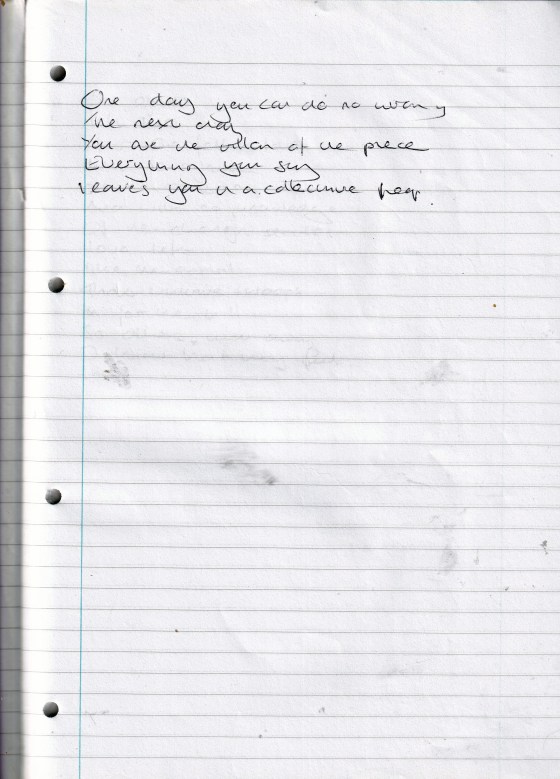 One day you can do no wrong
The next day
You are the villan of the piece
Everything you say
Leaves you in a collective heap.